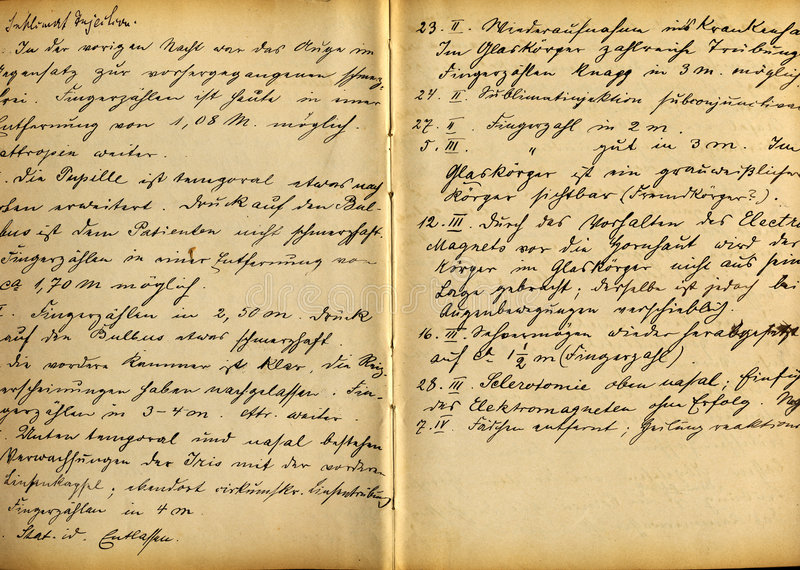 Sublimat Injection.
In der vorigen Nacht war das Auge im
Gegensatz zur vorhergegangenen schmerz-
frei. Fingerzählen ist heute in einer
Entfernung von 1,08 M. möglich.
Attropin weiter.
Die Pupille ist temporal etwas nach
oben erweitert. Druck auf den Bul-
bus ist dem Patienten nicht schmerzhaft.
Fingerzählen in einer Entfernung von
ca 1,70 M möglich.
Fingerzählen in 2,50 m. Druck
auf den Bulbus etwas schmerzhaft.
die vordere Kammer ist klar, die Reiz-
erscheinungen haben nachgelassen. Fin-
gerzählen in 3-4 m. Atr. weiter.
Unten temporal und nasal bestehen
Verwachsungen der Iris mit der vorderen
Linsenkapsel; ebendort cirkumskr. Linsentrübung
Fingerzählen in 4 m.
Stat. id. Entlassen.
23. II. Wiederaufnahme ins Krankenha
Im Glaskörper zahlreiche Trübung
Fingerzählen knapp in 3 m. möglich
24. II. Sublimatinjektion subconjunctiva
27. II. Fingerzahl in 2 m.
5. III. " gut in 3 m. Im
Glaskörper ist ein grauweißlicher
Körper sichtbar (Fremdkörper?).
12. III. Durch das Vorhalten des Electro
Magnets vor die Hornhaut wird der
Körper im Glaskörper nicht aus sein
Lage gebracht; derselbe ist jedoch bei
Augenbewegungen verschieblich.
16. III. Sehvermögen wieder herabgesetzt
auf ca 1 1/2 m (Fingerzahl).
28. III. Sclerotomie oben nasal; Einfüh
des Elektromagneten ohne Erfolg.
7. IV. Faden entfernt; Heilung reaktions